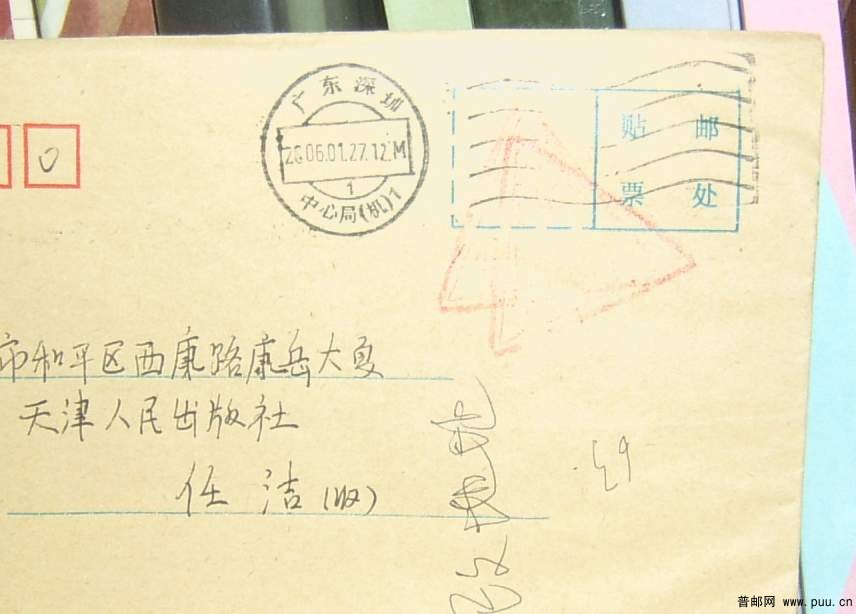 广东深圳
2006.01.27.12.M
1
中心局(机)1
贴 邮
票 处
0
市和平区西康路康岳大夏
天津人民出版社
任洁(收)
普邮网 www.puu.cn